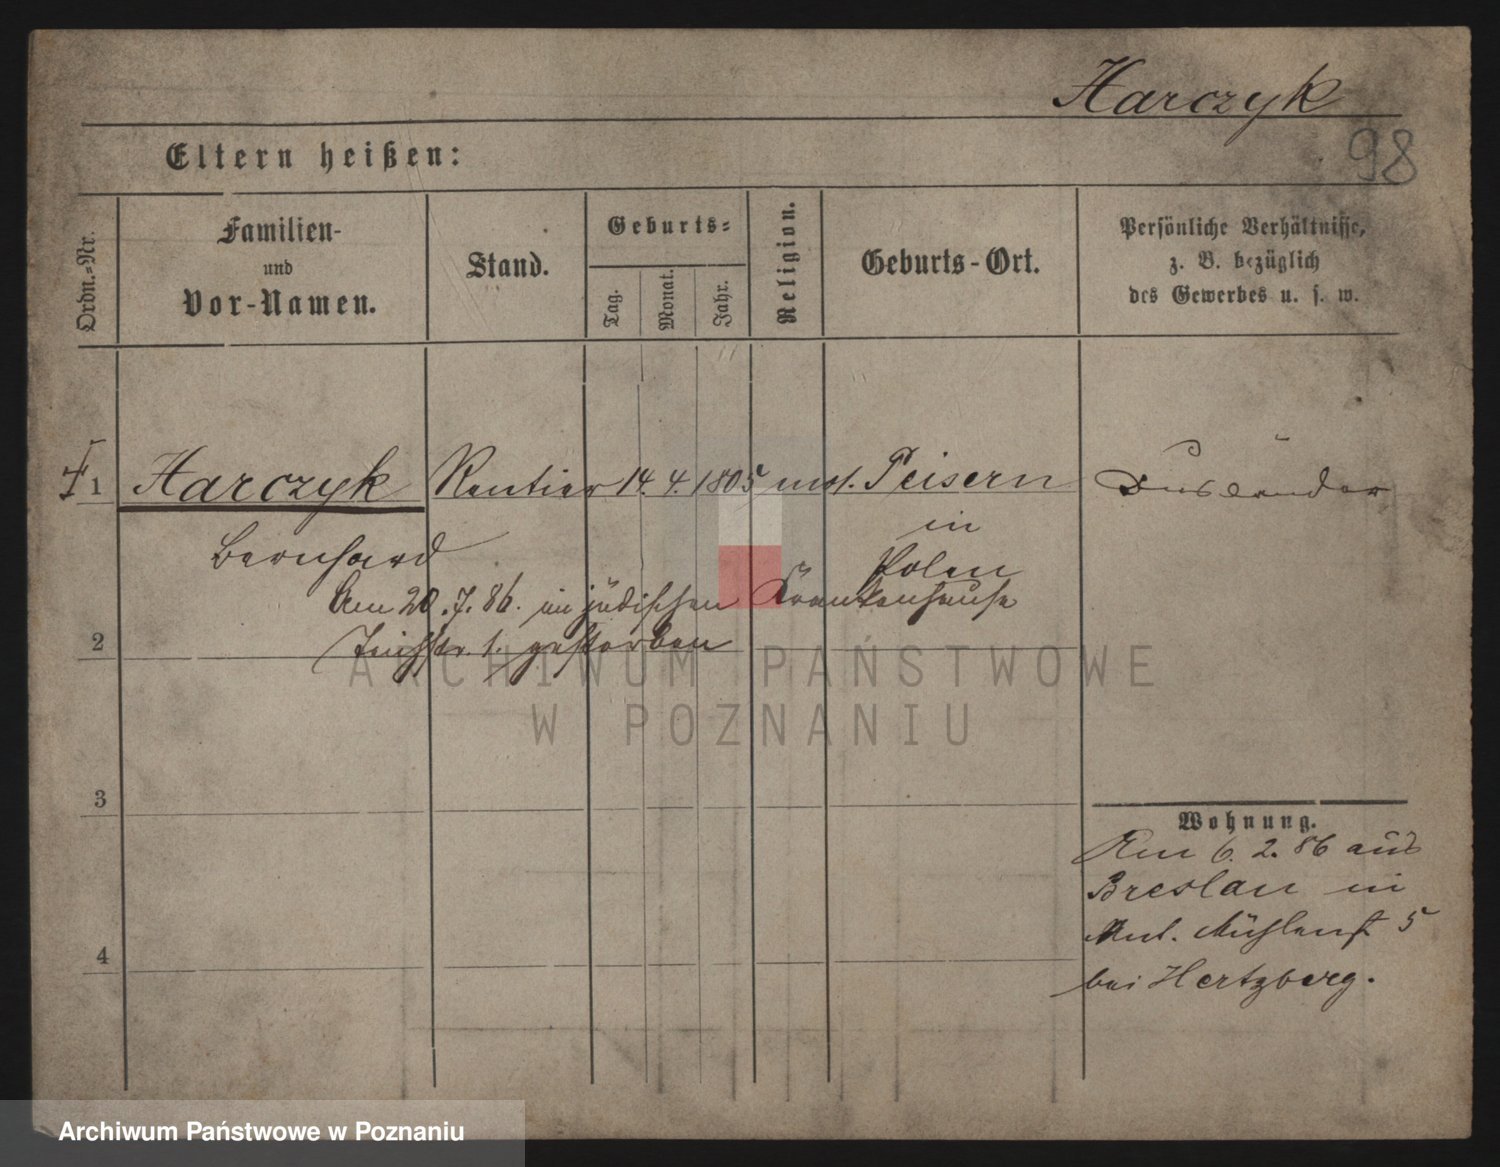 Harczyk
98
Eltern heißen:
Ordn.-Nr.
Familien-
und
Vor-Namen.
Stand.
Geburts-
Tag.
Monat.
Jahr.
Religion.
Geburts-Ort.
Persönliche Verhältnisse,
z. B. bezüglich
des Gewerbes u. s. w.
1 Harczyk Rentier 14. 4. 1805 mos. Peisern Ausländer
in
Bernhard Polen
Am 20.7.86. im jüdischen Krankenhause
2 Teichstr. 1. gestorben
ARCHIWUM PAŃSTWOWE
W POZNANIU
3
Wohnung.
Am 6. 2. 86 aus
Breslau in
Mühlenst 5
4
bei Hertzberg.
Archiwum Państwowe w Poznaniu